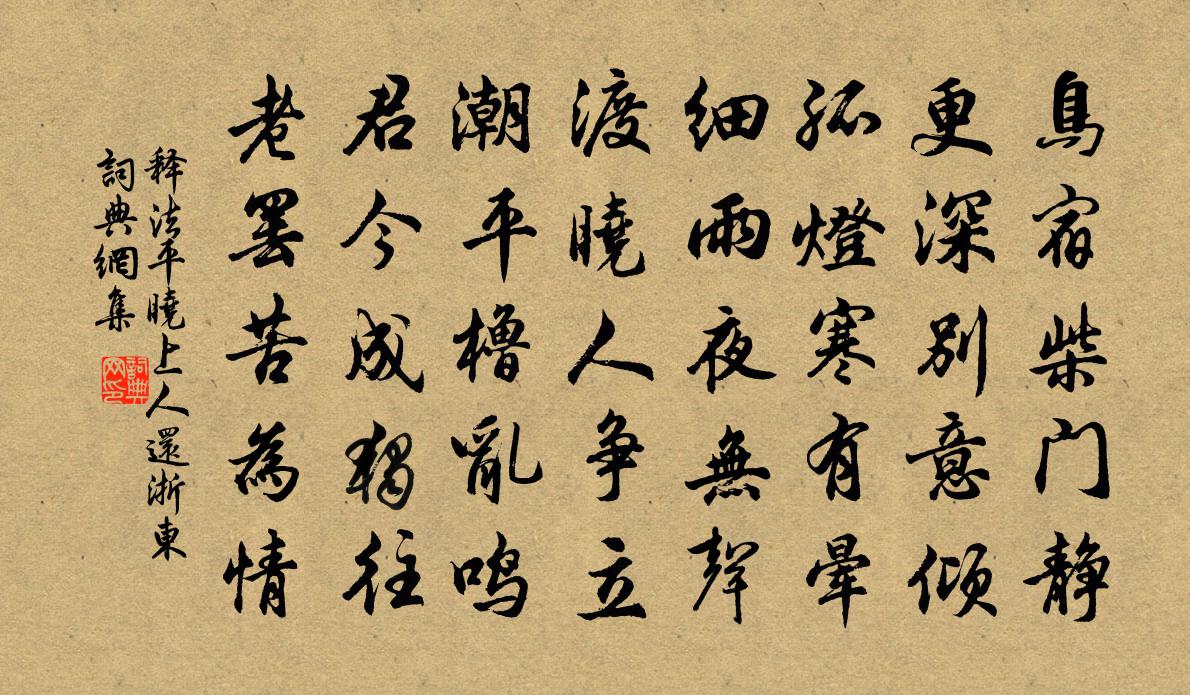 鳥宿柴门静
更深别意倾
孤燈寒有暈
细雨夜無聲
渡曉人争立
潮平櫓亂鸣
君今成獨往
老罢苦為情
释法平曉上人還浙東
詞典網集
詞典网印